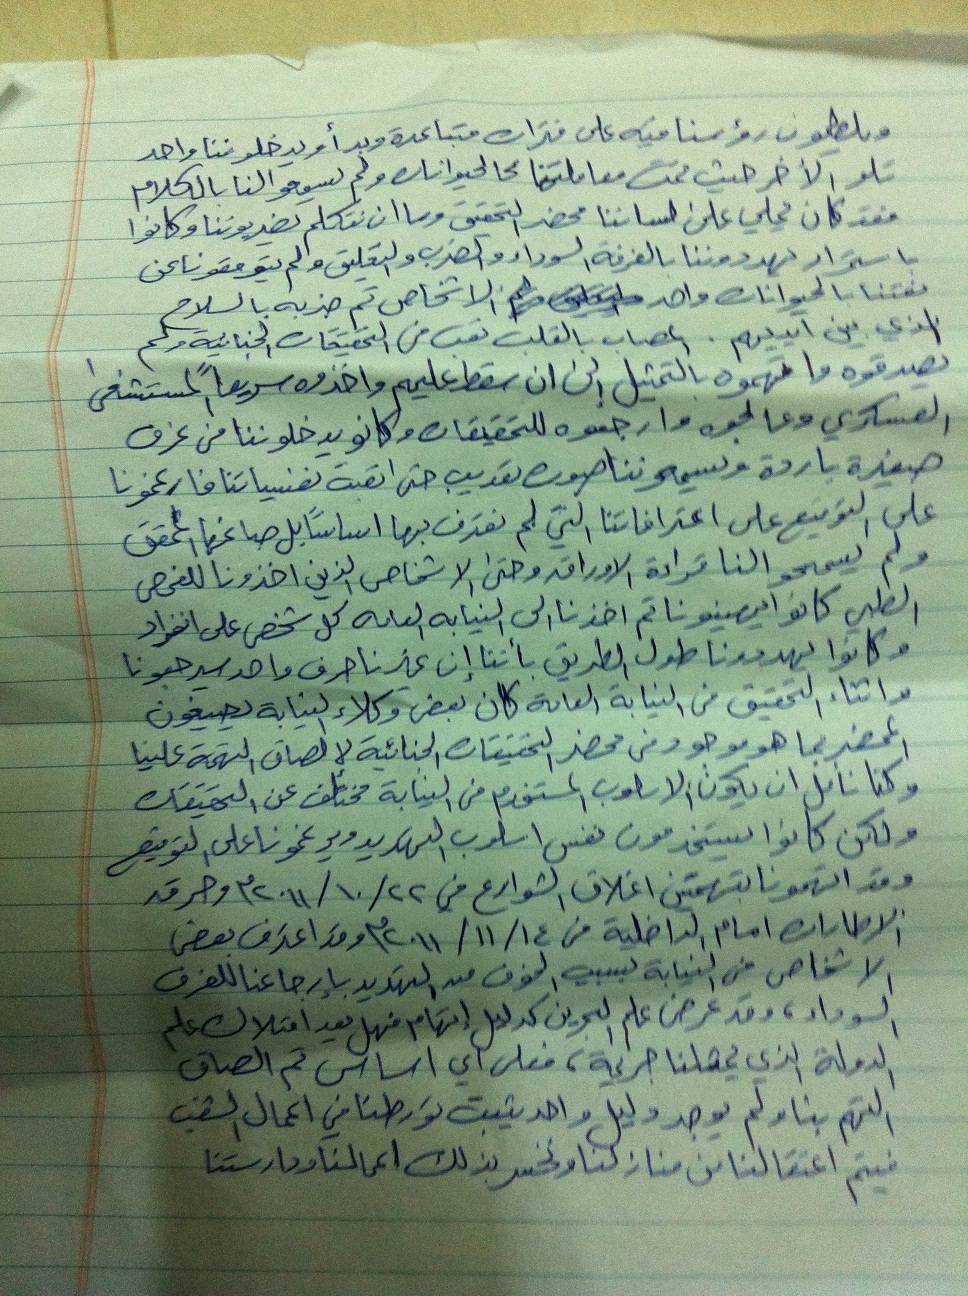 ويلطمون رؤسنا فيه على فترات متباعدة وبدأو يدخلوننا واحد
تلو الأخر حيث تمت معاملتنا كالحيوانات ولم يسمحوا لنا بالكلام
فقد كان يملي على لساننا محضر التحقيق وما ان نتكلم يضربوننا وكانوا
باستمرار يهددوننا بالغرفة السوداء والضرب والتعليق ولم يتوقفوا عن
نعتنا بالحيوانات واحد الاشخاص تم ضربه بالسلاح
الذي بين ايديهم . المصاب بالقلب تعب في التحقيقات الجنائية ولم
يصدقوه واتهموه بالتمثيل إلى ان سقط عليهم واخذوه سريعاً لمستشفى
العسكري وعالجوه وارجعوه للتحقيقات وكانو يدخلوننا في غرف
صغيرة باردة ويسمعوننا صوت تعذيب حتى اتعبت نفسياتنا فارغمونا
على التوقيع على اعترافاتنا التي لم نعترف بها اساساً بل صاغها المحقق
ولم يسمحوا لنا قراءة الاوراق وحتى الاشخاص الذين اخذونا للفحص
الطبي كانوا يهينونا تم اخذنا الى النيابه العامه كل شخص على انفراد
وكانوا يهددونا طول الطريق بأننا إن غيرنا حرف واحد سيرجعونا
واثناء التحقيق في النيابة العامة كان بعض وكلاء النيابة يصيغون
المحضر بما هو موجود في محضر التحقيقات الجنائية لإلصاق التهمة علينا
وكنا نأمل ان يكون الاسلوب المستخدم في النيابة مختلف عن التحقيقات
ولكن كانوا يستخدمون نفس اسلوب التهديد ويرغمونا على التوقيع
وقد اتهمونا بتهمتين اغلاق الشوارع في ٢٢/١٠/٢٠١١م وحرق
الاطارات امام الداخلية في ١٤/١١/٢٠١١م وقد اعترف بعض
الاشخاص في النيابة بسبب الخوف من التهديد بإرجاعنا للغرف
السوداء، وقد عرض علم البحرين كدليل إتهام فهل يعد امتلاك علم
الدولة الذي يمثلنا جريمة، فعلى أي اساس تم الصاق
التهم بنا ولم يوجد دليل واحد يثبت تورطنا في اعمال الشغب
فيتم اعتقالنا من منازلنا ونخسر بذلك اعمالنا ودارستنا